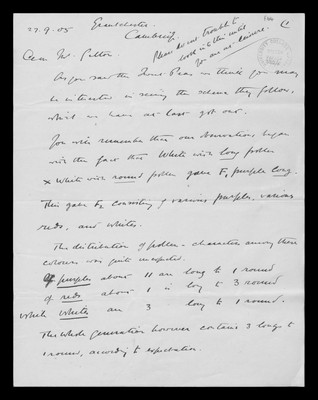 23.9.05 Grantchester.
Cambridge.
Please do not trouble to
look into this until
you are at leisure.
Dear Mr
As you saw the Sweet Peas we think you may
be interested in seeing the scheme they follow,
which we have at last got out.
You will remember that our observations began
with the fact that White with long pollen
x White with round pollen gave F1 purple long.
This gave F2 consisting of various purples, various
reds, and whites.
The distribution of pollen-characters among these
colours was quite unexpected.
Of purples about 11 are long to 1 round
Of reds about 1 is long to 3 round
while whites are 3 long to 1 round.
The whole generation however contains 3 longs to
1 round, according to expectation.